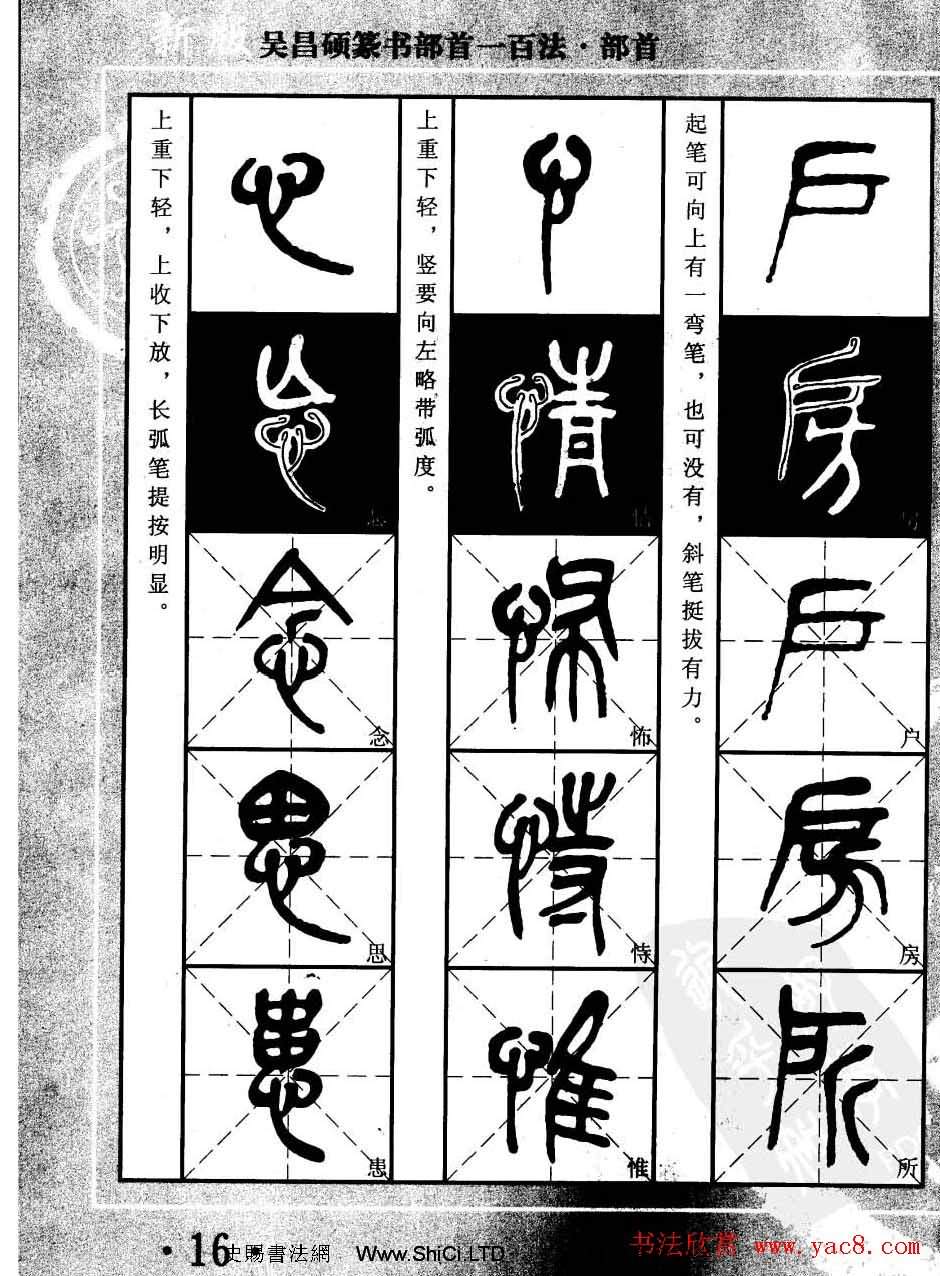 新版 吴昌硕篆书部首一百法·部首
起笔可向上有一弯笔，也可没有，斜笔挺拔有力。
户
房
所
上重下轻，竖要向左略带弧度。
情
怖
恃
惟
上重下轻，上收下放，长弧笔提按明显。
念
思
患
·16·
史赐書法網 Www.ShiCi.LTD
书法欣赏 www.yac8.com